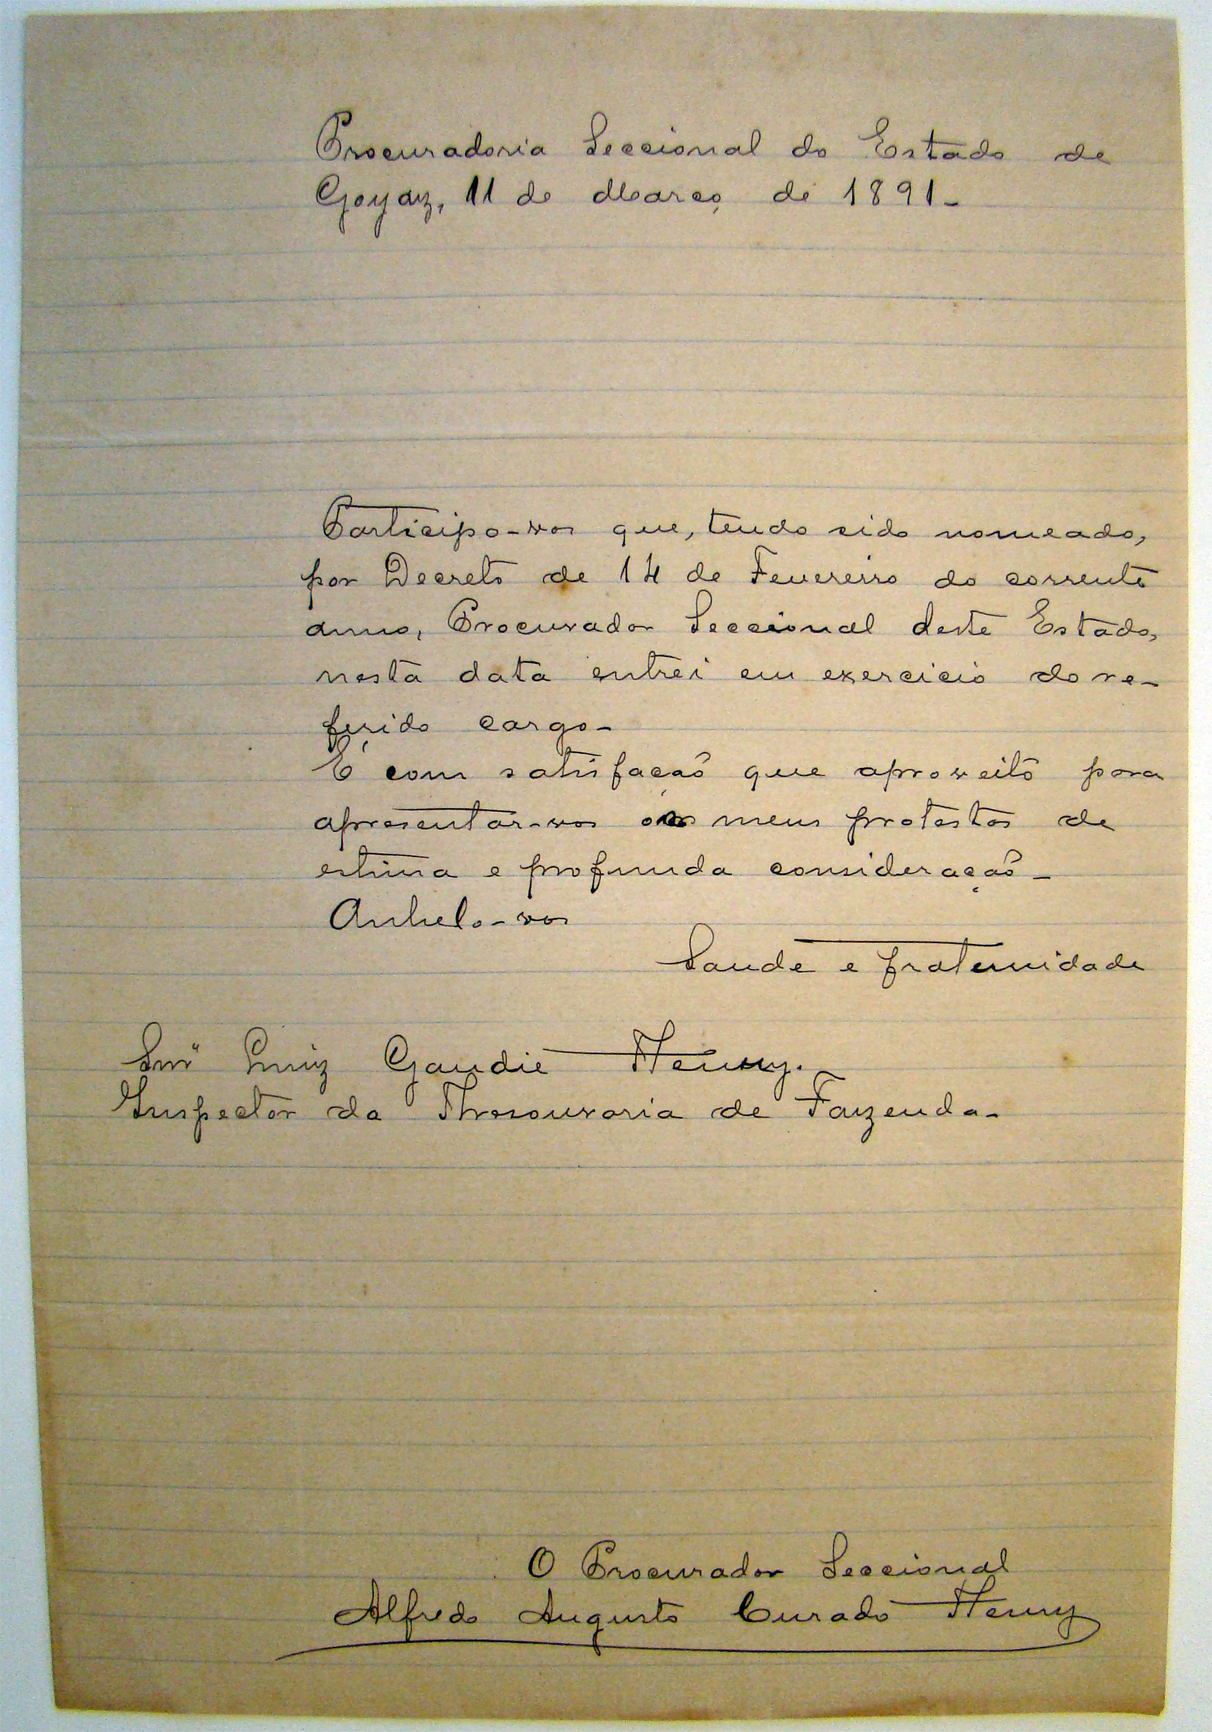 Procuradoria Seccional do Estado de
Goyaz, 11 de Março de 1891-
Participo-vos que, tendo sido nomeado,
por Decreto de 14 de Fevereiro do corrente
anno, Procurador Seccional deste Estado,
nesta data entrei em exercicio do re-
ferido cargo-
É com satisfação que aproveito para
apresentar-vos os meus protestos de
estima e profunda consideração-
Anhelo-vos
Saude e fraternidade
Snr Luiz Gaudie Fleury.
Inspector da Thesouraria de Fazenda-
O Procurador Seccional
Alfredo Augusto Curado Fleury